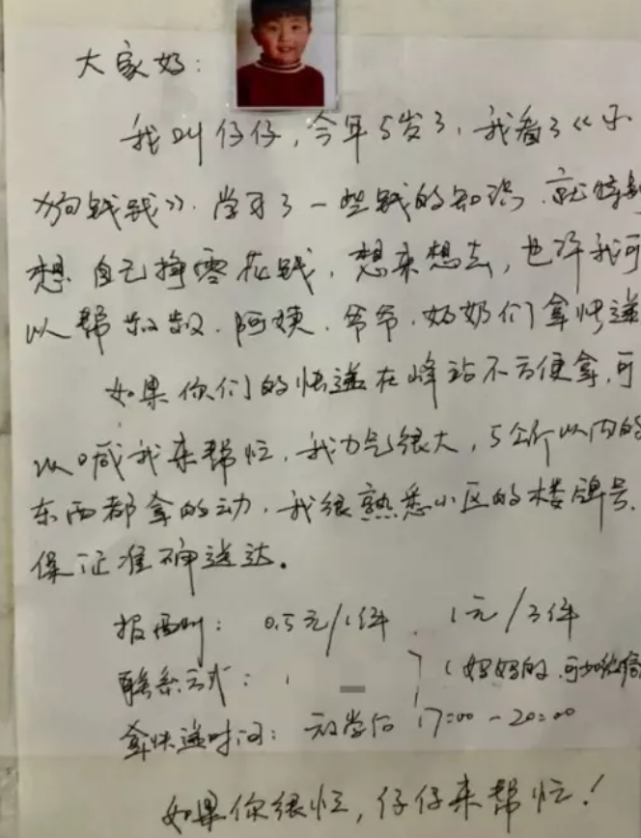 大家好：
我叫仔仔，今年5岁了，我看了《小
狗钱钱》.学习了一些钱的知识.就特别
想.自己挣零花钱，想来想去，也许我可
以帮叔叔.阿姨.爷爷.奶奶们拿快递
如果你们的快递在峰站不方便拿，可
以喊我来帮忙，我力气很大，5公斤以内的
东西都拿的动，我很熟悉小区的楼牌号，
保证准确送达。
报酬：0.5元/1件．1元/3件
联系方式：（妈妈的，可加微信
拿快递时间：放学后 17:00-20:00
如果你很忙，仔仔来帮忙！